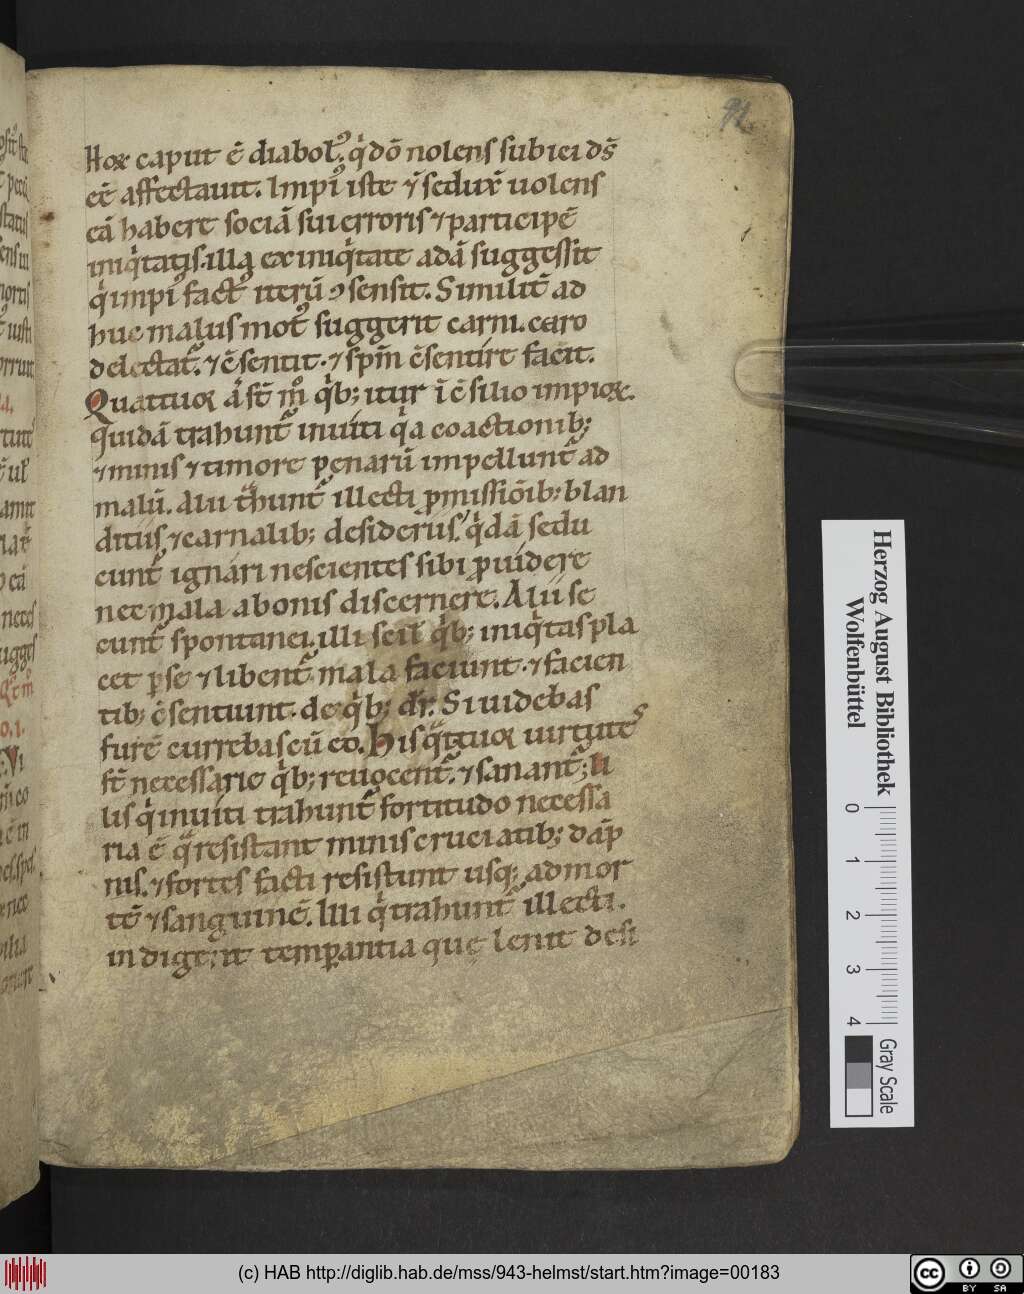 92
Hox caput ē diabol᷒. q̇dō nolens subiei ds̄
eē affectauit. Impi᷒ iste ⁊ sedux̄ uolens
eā habere sociā sui erroris ⁊ participē
iniq̇tatis. illaq; ex iniq̇tate adā suggessit
q̇ impi᷒ fact᷒ iterū ɔsensit. Similit̄ ad
huc malus mot᷒ suggerit carni. caro
delectat᷒. ⁊ c̄sentit. ⁊ spm̄ c̄sentire facit.
Quattuor aͥ st̄ m̊ q̇b; itur ī c̄silio impiox.
quidā trahunt᷒ inuiti q̇a coactionib;
⁊ minis ⁊ timore penarū impellunt᷒ ad
malū. Alii t̄hunt᷒ illecti pmissiōib; blan
ditiis ⁊ carnalib; desideriis. q̇dā sedu
cunt᷒ ignari nescientes sibi puidere
nec mala a bonis discernere. Alii se
cunt᷒ spontanei. illi scil q̇b; iniq̇tas pla
cet p se ⁊ libent᷒ mala faciunt. ⁊ facien
tib; c̄sentiunt. de q̇b; dr̄. Si uidebas
furē currebas cū eo. His q̈ttuor uirtute᷒
st̄ necessarie q̇b; reuocent᷒. ⁊ sanant᷒; Il
lis q̇ inuiti trahunt᷒ fortitudo necessa
ria ē q̈ resistant minis cruciatib; dāp
nis. ⁊ fortes facti resistunt usq; ad mor
tē ⁊ sanguinē. Illi q̇ trahunt᷒ illecti.
indigent temperantia quę lenit desi
Herzog August Bibliothek
Wolfenbüttel
0 1 2 3 4
Gray Scale
(c) HAB http://diglib.hab.de/mss/943-helmst/start.htm?image=00183
cc BY SA